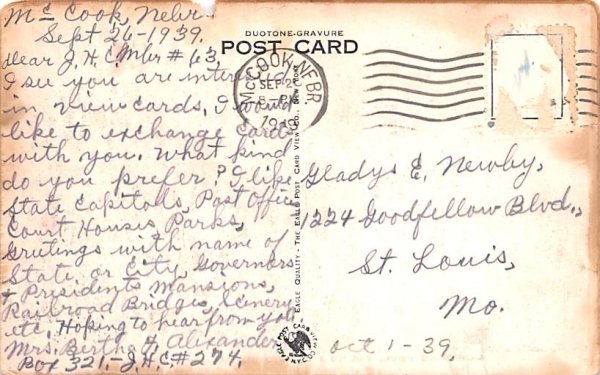 Mc Cook, Nebr.
Sept 26-1939.
Dear J.H.C Mbr # 63,
I see you are interested
in view cards, I would
like to exchange cards
with you. What kind
do you prefer? I like
State Capitols, Post Office
Court Houses, Parks,
Greetings with name of
State or City, Governors
+ Presidents Mansions,
Railroad Bridges, Scenery
etc. Hoping to hear from you
Mrs. Bertha H. Alexander
Box 321,-J.H.C.#274.
DUOTONE-GRAVURE
POST CARD
McCOOK, NEBR.
SEP 26
PM
1939
EAGLE QUALITY - THE EAGLE POST CARD VIEW CO., NEW YORK
Gladys E. Newby,
1224 Goodfellow Blvd.,
St. Louis,
Mo.
EAGLE POST CARD VIEW CO.
N.Y.C.
Oct 1-39,